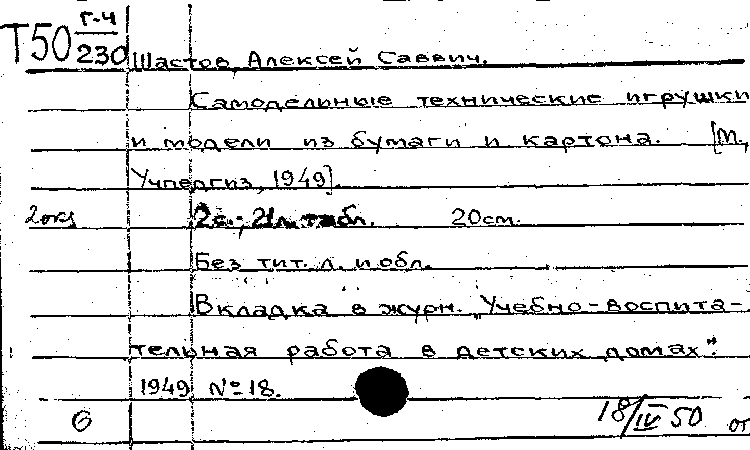 Т50 Г-4
230
Шастов, Алексей Саввич.
Самодельные технические игрушки
и модели из бумаги и картона. [М.,
Учпедгиз, 1949].
2 экз 2с.; 21л. табл. 20см.
Без тит. л. и обл.
Вкладка в журн. „Учебно-воспита-
тельная работа в детских домах".
1949 № 18.
18/IV 50 от